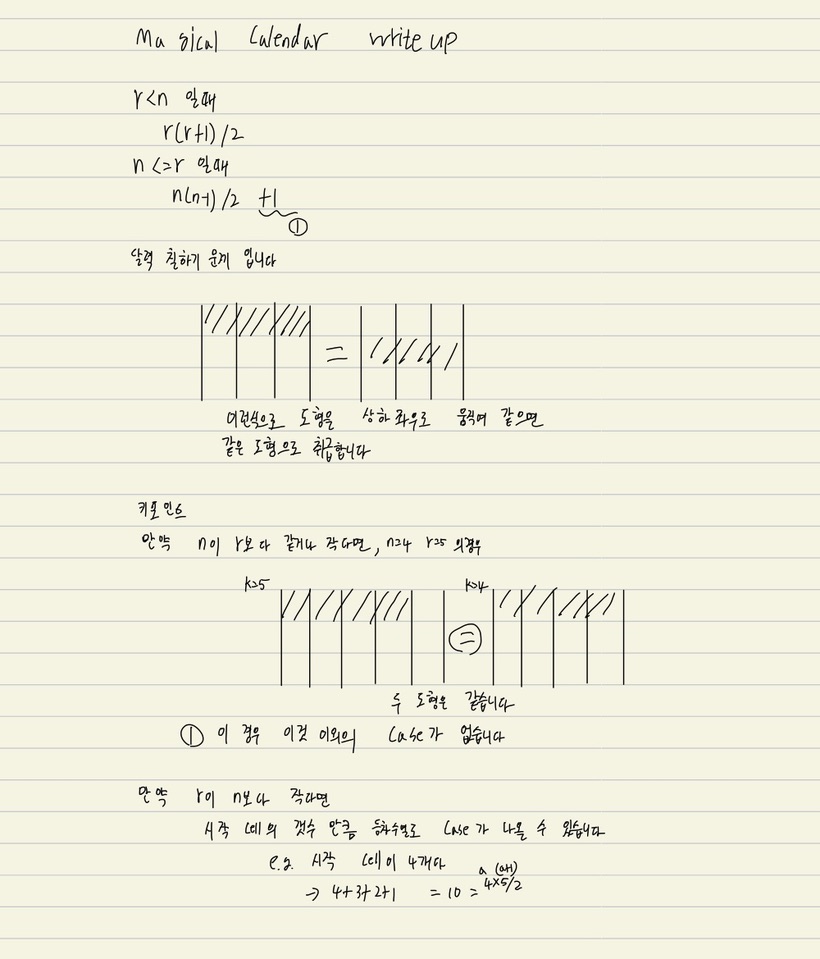 Magical Calendar write up
r<n 일때
r(r+1)/2
n<=r 일때
n(n-1)/2 +1
①
달력 칠하기 문제 입니다
=
이런식으로 도형을 상하좌우로 움직여 같으면
같은 도형으로 취급합니다
키포인트
만약 n이 r보다 같거나 작다면, n=4 r=5 의경우
k=5 k=4
=
두 도형은 같습니다
① 이 경우 이것 이외의 Case가 없습니다
만약 r이 n보다 작다면
시작 cell의 갯수 만큼 등차수열로 Case가 나올 수 있습니다
e.g. 시작 cell이 4개다
a (a+1)
→ 4+3+2+1 = 10 = 4×5/2